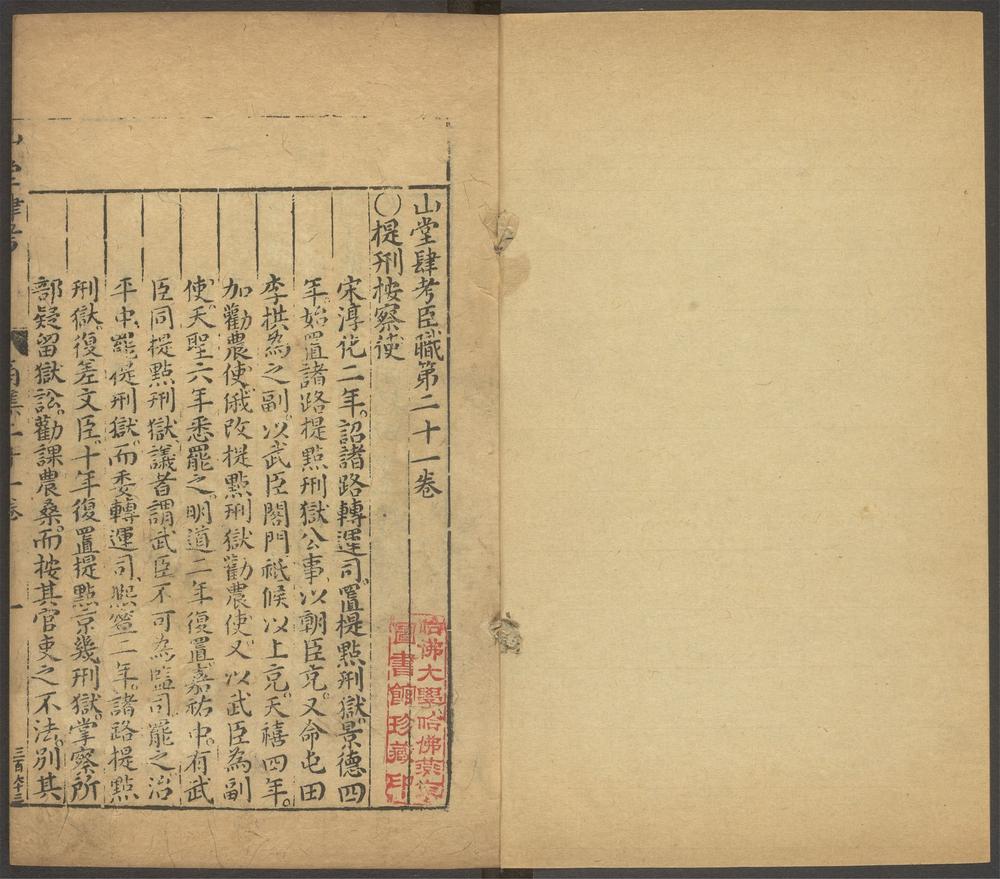 山堂肆考臣職第二十一卷
○提刑按察使
宋淳化二年。詔諸路轉運司。置提點刑獄。景德四
年。始置諸路提點刑獄公事。以朝臣充。又命屯田
李拱為之副。以武臣閤門祗候以上充。天禧四年。
加勸農使。俄改提點刑獄勸農使。又以武臣為副
使。天聖六年悉罷之。明道二年復置。嘉祐中。有武
臣同提點刑獄議者謂武臣不可為監司罷之治
平中。罷提刑獄。而委轉運司。熙寧二年。諸路提點
刑獄。復差文臣。十年復置提點京畿刑獄。掌察所
部疑留獄訟。勸課農桑。而按其官吏之不法。別其
山堂肆考
角集二十一卷
一
三百六十三
哈佛大學哈佛燕京
圖書館珍藏印